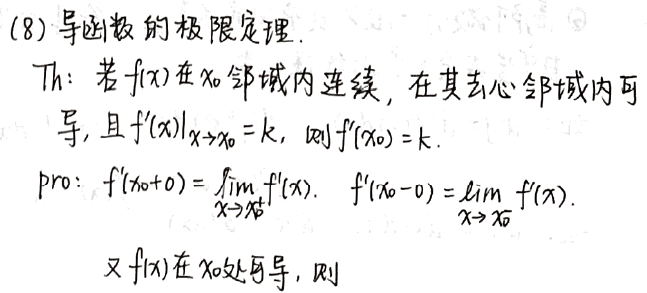 (8) 导函数的极限定理.
Th: 若f(x)在x₀邻域内连续, 在其去心邻域内可
导, 且f'(x)|x→x₀ = k, 则f'(x₀)=k.
pro: f'(x₀+0) = lim x→x₀⁺ f'(x). f'(x₀-0) = lim x→x₀⁻ f'(x).
又f(x)在x₀处可导, 则